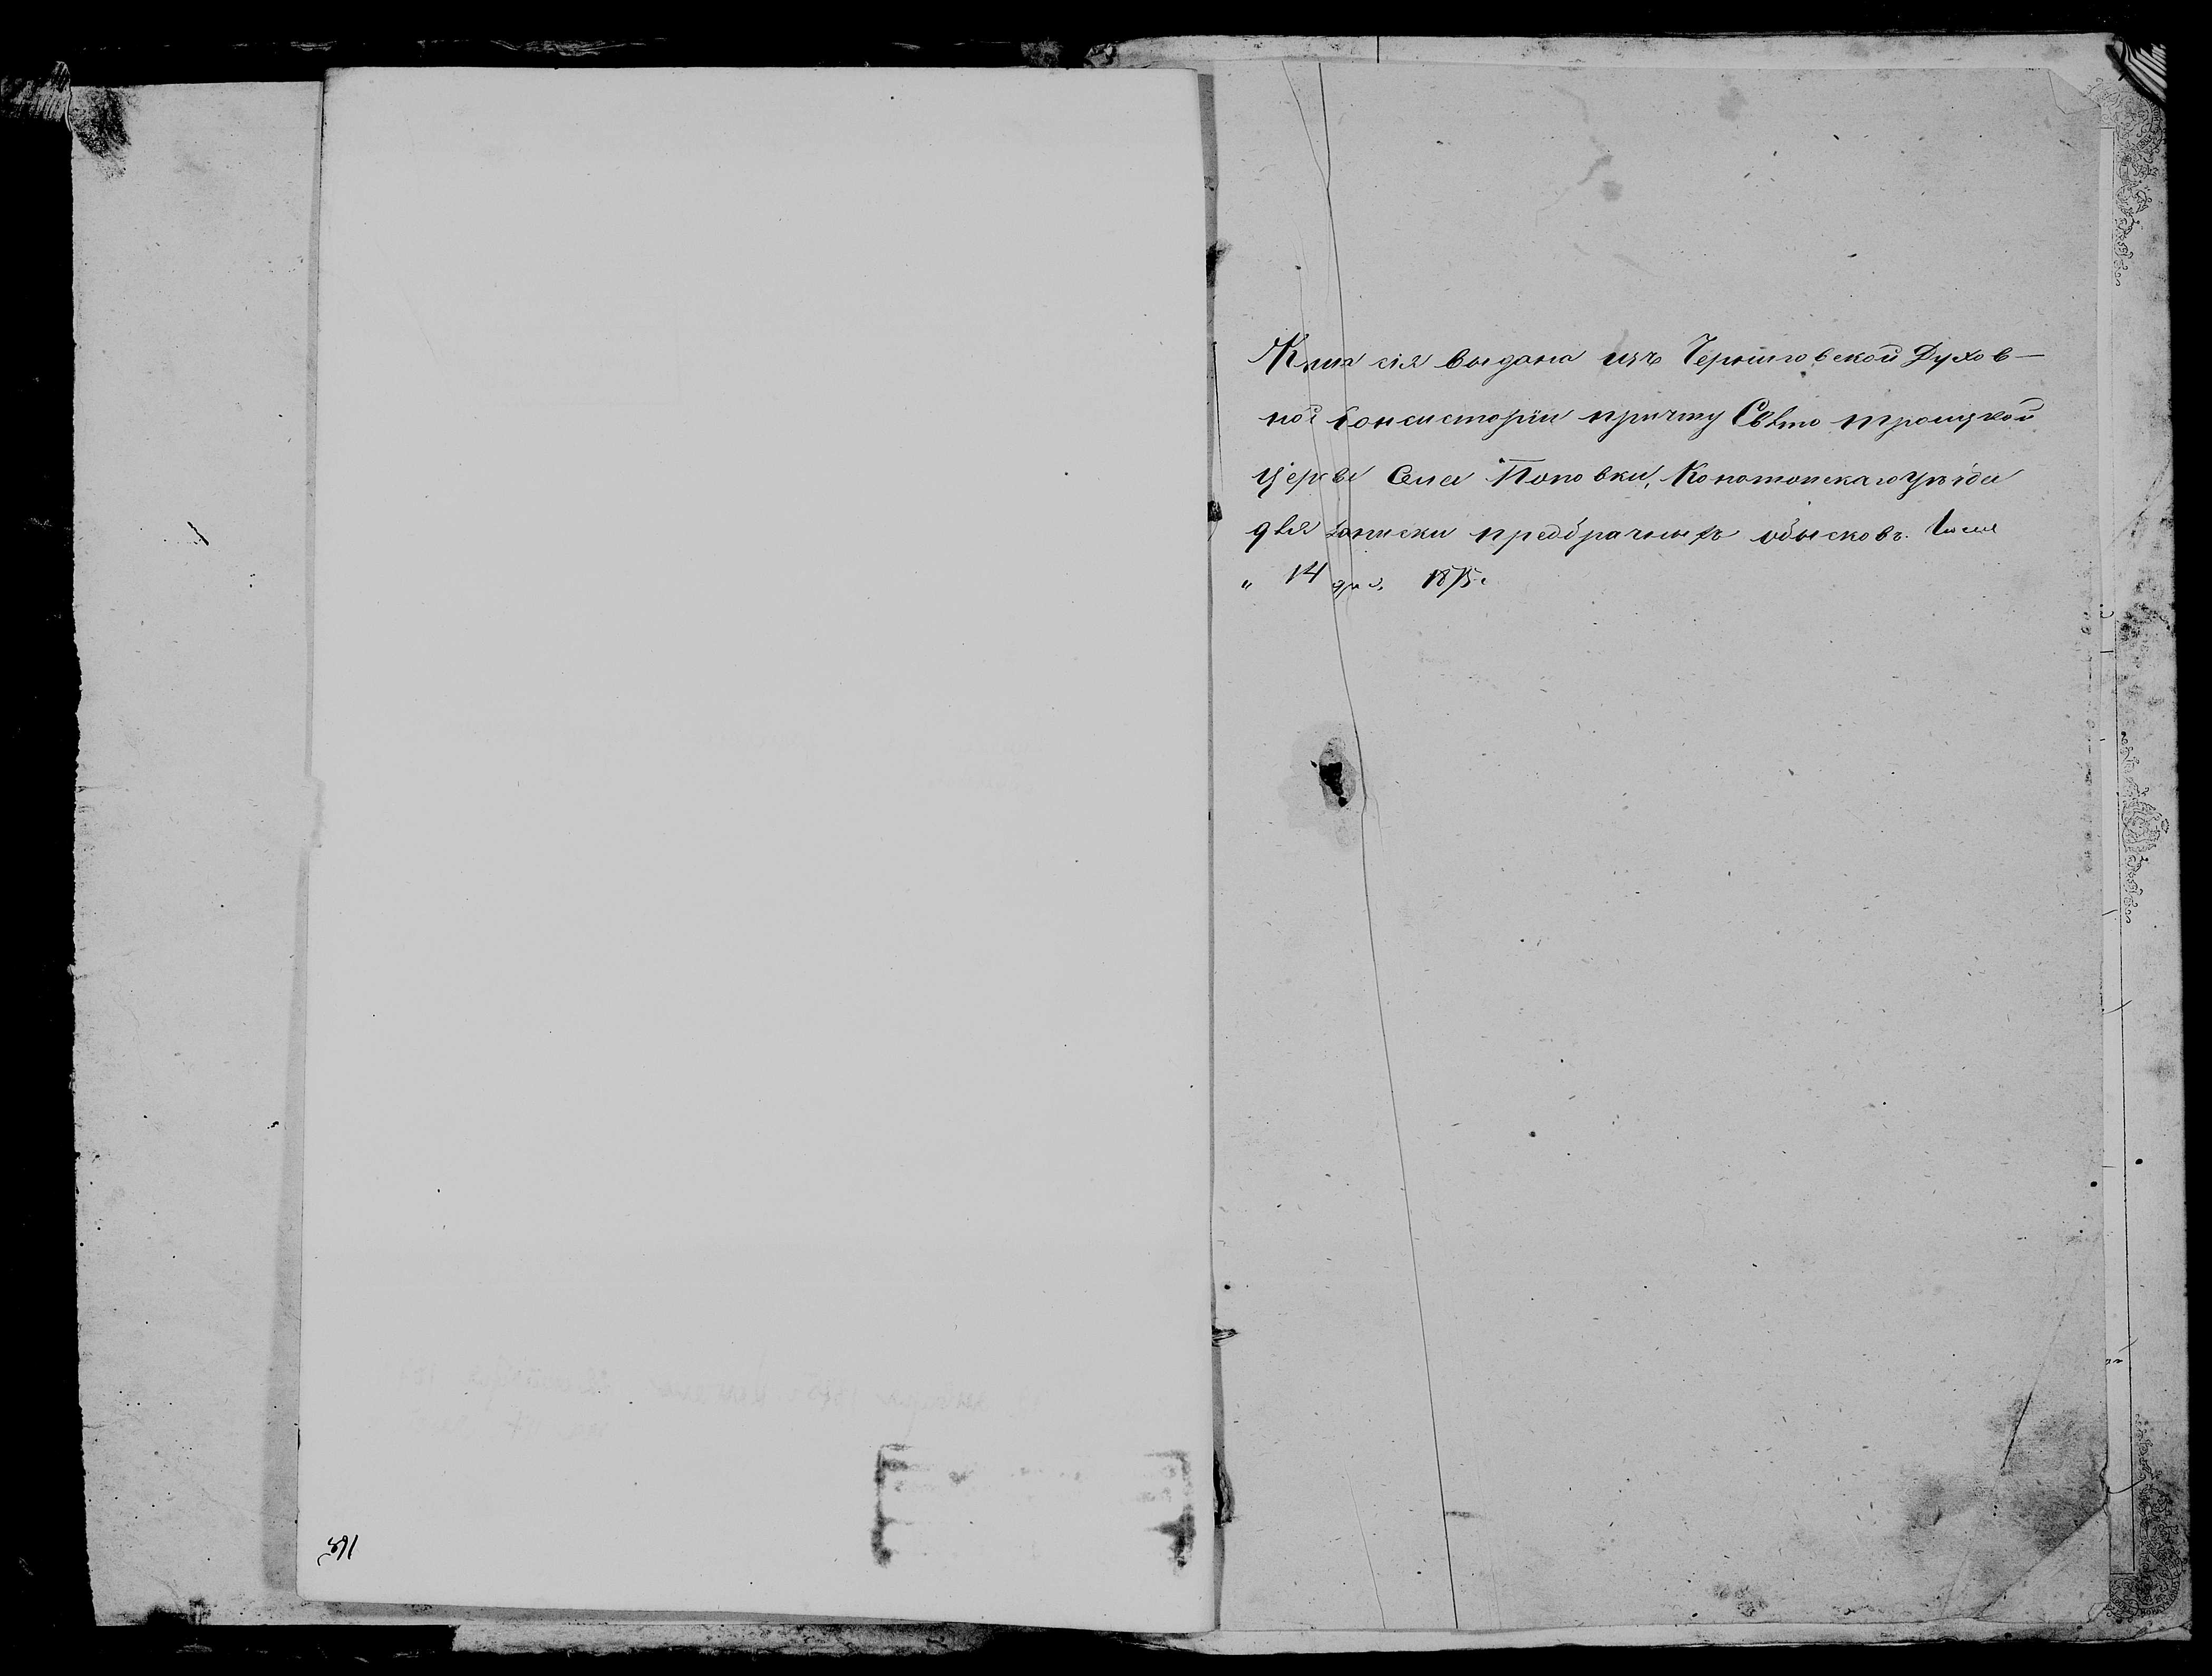 Книга сія выдана изъ Черниговской Духов-
ной Консисторіи причту Свято троицкой
Церкви Села Поповки, Конотопскаго уѣзда
для записки предбрачныхъ обысковъ.
" 14 дня 1875 г.